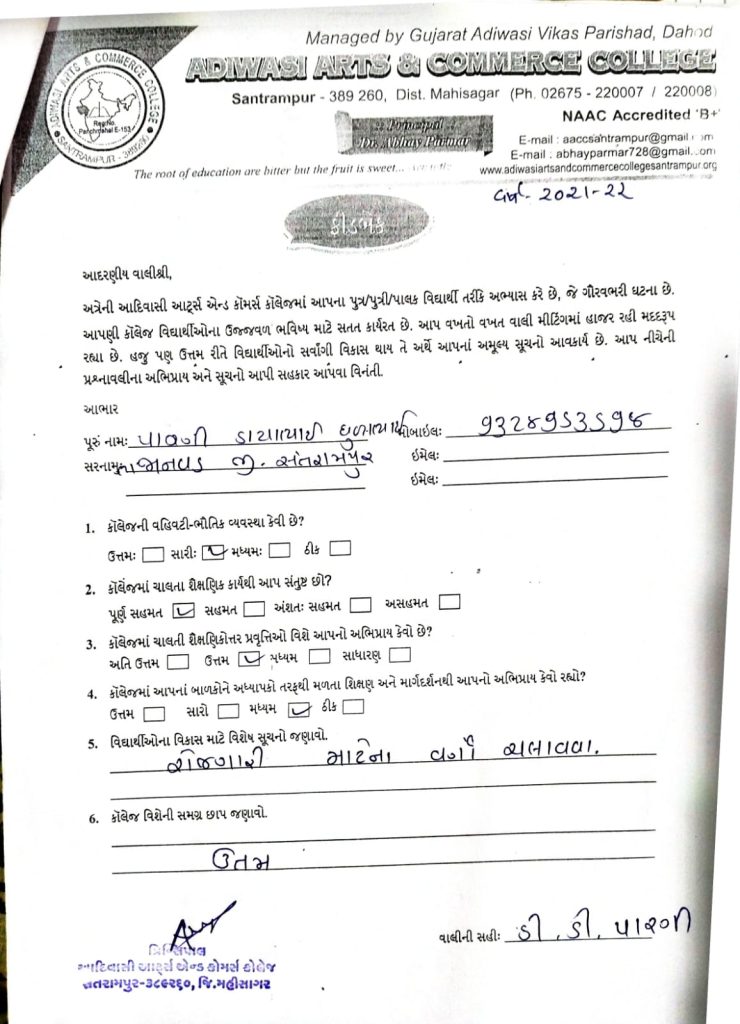 Managed by Gujarat Adiwasi Vikas Parishad, Dahod
ADIWASI ARTS & COMMERCE COLLEGE
Santrampur - 389 260, Dist. Mahisagar (Ph. 02675 - 220007 / 220008)
NAAC Accredited 'B+'
:: Principal ::
Dr. Abhay Parmar
E-mail : aaccsantrampur@gmail.com
E-mail : abhayparmar728@gmail.com
www.adiwasiartsandcommercecollegesantrampur.org
The root of education are bitter but the fruit is sweet...
ADIWASI ARTS & COMMERCE COLLEGE
Reg.No.
Panchmahal E-153
SANTRAMPUR - 389260
વર્ષ- 2021-22
ફીડબેક
આદરણીય વાલીશ્રી,
અત્રેની આદિવાસી આર્ટ્સ એન્ડ કૉમર્સ કૉલેજમાં આપના પુત્ર/પુત્રી/પાલક વિદ્યાર્થી તરીકે અભ્યાસ કરે છે, જે ગૌરવભરી ઘટના છે.
આપણી કૉલેજ વિદ્યાર્થીઓના ઉજ્જવળ ભવિષ્ય માટે સતત કાર્યરત છે. આપ વખતો વખત વાલી મીટિંગમાં હાજર રહી મદદરૂપ
રહ્યા છે. હજુ પણ ઉત્તમ રીતે વિદ્યાર્થીઓનો સર્વાંગી વિકાસ થાય તે અર્થે આપનાં અમૂલ્ય સૂચનો આવકાર્ય છે. આપ નીચેની
પ્રશ્નાવલીના અભિપ્રાય અને સૂચનો આપી સહકાર આપવા વિનંતી.
આભાર
પૂરું નામઃ પારગી ડાયાભાઈ ધુળાભાઈ મોબાઇલઃ ૧૩૨૪૧૬૩૬૧૪
સરનામુ જાનવડ જી. સંતરામપુર ઇમેલઃ
ઇમેલઃ
1. કૉલેજની વહિવટી-ભૌતિક વ્યવસ્થા કેવી છે?
ઉત્તમઃ સારીઃ મધ્યમઃ ઠીક
2. કૉલેજમાં ચાલતા શૈક્ષણિક કાર્યથી આપ સંતુષ્ટ છો?
પૂર્ણ સહમત સહમત અંશતઃ સહમત અસહમત
3. કૉલેજમાં ચાલતી શૈક્ષણિકોત્તર પ્રવૃત્તિઓ વિશે આપનો અભિપ્રાય કેવો છે?
અતિ ઉત્તમ ઉત્તમ મધ્યમ સાધારણ
4. કૉલેજમાં આપનાં બાળકોને અધ્યાપકો તરફથી મળતા શિક્ષણ અને માર્ગદર્શનથી આપનો અભિપ્રાય કેવો રહ્યો?
ઉત્તમ સારો મધ્યમ ઠીક
5. વિદ્યાર્થીઓના વિકાસ માટે વિશેષ સૂચનો જણાવો.
રોજગારી માટેના વર્ગો ચલાવવા.
6. કૉલેજ વિશેની સમગ્ર છાપ જણાવો.
ઉતમ
વાલીની સહીઃ ડી. ડી. પારગી
પ્રિન્સિપાલ
આદિવાસી આર્ટ્સ એન્ડ કોમર્સ કોલેજ
સંતરામપુર-૩૮૯૨૬૦, જિ.મહીસાગર